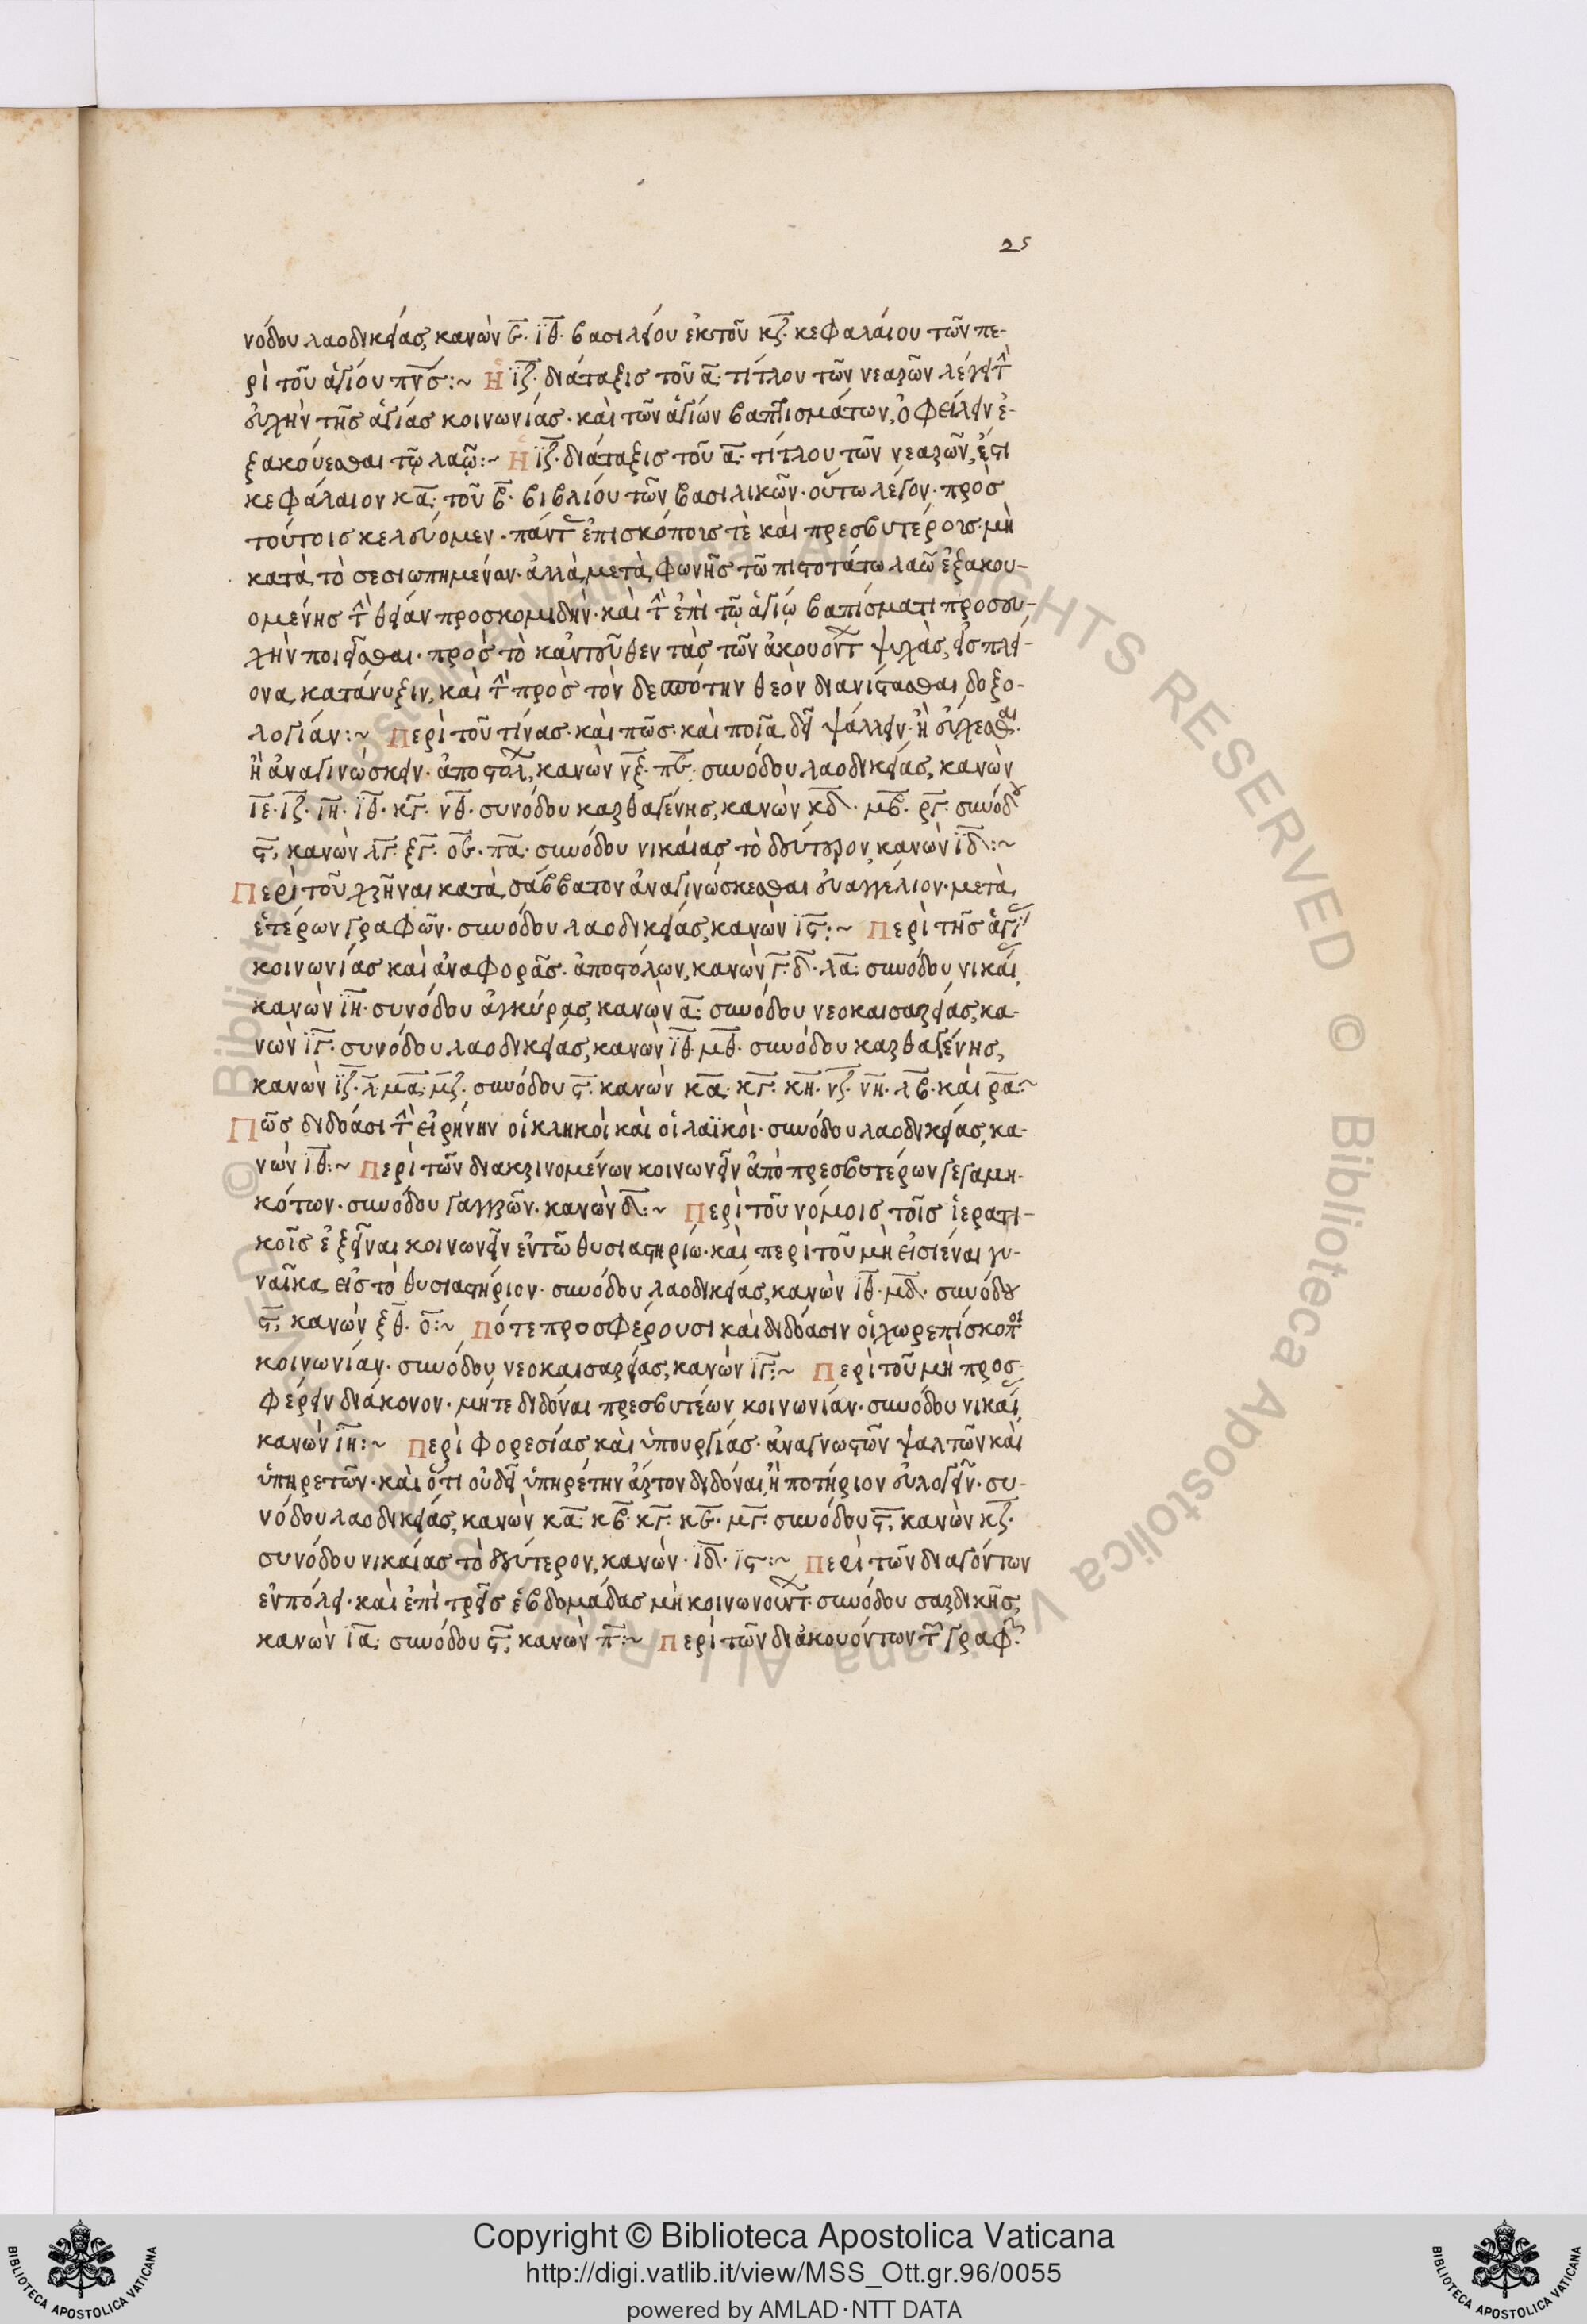 25
νόδου λαοδικείας, κανὼν ϛ̅. ϊθ̅. βασιλείου ἐκ τοῦ κζ̅. κεφαλαίου τῶν πε-
ρὶ τοῦ ἁγίου πν̅ς: ~ Ἡ ϊζ̅. διάταξις τοῦ α̅. τίτλου τῶν νεαρῶν λέγει τ̂
εὐχὴν τῆς ἁγίας κοινωνίας. καὶ τῶν ἁγίων βαπτισμάτων, ὀφείλειν ἐ-
ξακούεσθαι τῷ λαῷ: ~ Ἡ ϊζ̅. διάταξις τοῦ α̅. τίτλου τῶν νεαρῶν, ἐστι
κεφάλαιον κα̅. τοῦ β̅. βιβλίου τῶν βασιλικῶν. οὕτω λέγον. πρὸς
τούτοις κελεύομεν. πάντ ἐπισκόποις τὲ καὶ πρεσβυτέροις. μὴ
κατὰ τὸ σεσιωπημένον. ἀλλὰ μετὰ φωνῆς τῶ πιστοτάτω λαῶ ἐξακου-
ομένης τ̂ θείαν προσκομιδὴν. καὶ τ̂ ἐπὶ τῷ ἁγίῳ βαπτίσματι προσευ-
χὴν ποιεῖσθαι. πρὸς τὸ κἀντεῦθεν τὰς τῶν ἀκουόντ ψυχὰς, εἰς πλεί-
ονα κατάνυξιν, καὶ τ̂ πρὸς τὸν δεσπότην θεὸν διανίστασθαι δοξο-
λογίαν: ~ Περὶ τοῦ τίνας. καὶ πῶς. καὶ ποῖα δεῖ ψάλλειν. ἢ εὔχεσθαι.
ἢ ἀναγινώσκειν. ἀποστολ, κανὼν νξ̅. πϛ̅. συνόδου λαοδικείας, κανὼν
ιε̅. ιζ̅. ιη̅. ϊθ̅. κγ̅. νθ̅. συνόδου καρθαγένης, κανὼν κδ̅. μβ̅. ργ̅. συνόδου
ϛ̅, κανὼν λγ̅. ξγ̅. οϛ̅. πα̅. συνόδου νικαίας τὸ δεύτερον, κανὼν ϊδ̅: ~
Περὶ τοῦ χρῆναι κατὰ σάββατον ἀναγινώσκεσθαι εὐαγγέλιον. μετὰ
ἑτέρων γραφῶν. συνόδου λαοδικείας, κανὼν ϊϛ̅: ~ Περὶ τῆς ἁγί
κοινωνίας καὶ ἀναφορᾶς. ἀποστόλων, κανὼν γ̅. δ̅. λα̅. συνόδου νικαί
κανὼν ϊη̅. συνόδου ἀγκύρας, κανὼν α̅. συνόδου νεοκαισαρείας, κα-
νὼν ϊγ̅. συνόδου λαοδικείας, κανὼν ϊθ̅. μθ̅. συνόδου καρθαγένης,
κανὼν ϊζ̅. λ̅. μα̅. μζ̅. συνόδου ϛ̅. κανὼν κα̅. κγ̅. κη̅. νζ̅. νη̅. λβ̅. καὶ ρα̅: ~
Πῶς διδόασι τ̂ εἰρήνην οἱ κληκοὶ καὶ οἱ λαϊκοὶ. συνόδου λαοδικείας, κα-
νὼν ϊθ̅: ~ Περὶ τῶν διακρινομένων κοινωνεῖν ἀπὸ πρεσβυτέρων γεγαμη-
κότων. συνόδου γαγγρῶν. κανὼν δ̅: ~ Περὶ τοῦ νόμοις τοῖς ἱερατι-
κοῖς ἐξεῖναι κοινωνεῖν ἐν τῶ θυσιαστηρίω. καὶ περὶ τοῦ μὴ εἰσιέναι γυ-
ναῖκα εἰς τὸ θυσιαστήριον. συνόδου λαοδικείας, κανὼν ϊθ̅. μδ̅. συνόδου
ϛ̅, κανὼν ξθ̅. ο̅: ~ Πότε προσφέρουσι καὶ διδόασιν οἱ χωρεπίσκοποι
κοινωνίαν. συνόδου νεοκαισαρείας, κανὼν ϊγ̅: ~ Περὶ τοῦ μὴ προσ-
φέρειν διάκονον. μήτε διδόναι πρεσβυτέων κοινωνίαν. συνόδου νικαί
κανὼν ϊη̅: ~ Περὶ φορεσίας καὶ ὑπουργίας. ἀναγνωστῶν ψαλτῶν καὶ
ὑπηρετῶν. καὶ ὅτι οὐ δεῖ ὑπηρέτην ἄρτον διδόναι, ἢ ποτήριον εὐλογεῖν. συ-
νόδου λαοδικείας, κανὼν κα̅. κβ̅. κγ̅. κϛ̅. μγ̅. συνόδου ϛ̅, κανὼν κζ̅.
συνόδου νικαίας τὸ δεύτερον, κανὼν. ϊδ̅. ϊϛ̅: ~ Περὶ τῶν διαγόντων
ἐν πόλει. καὶ ἐπὶ τρεῖς ἑβδομάδας μὴ κοινωνούντ. συνόδου σαρδικῆς,
κανὼν ϊα̅. συνόδου ϛ̅, κανὼν π̅: ~ Περὶ τῶν διακουόντων τ̂ γραφ
© Biblioteca Apostolica Vaticana ALL RIGHTS RESERVED
Copyright © Biblioteca Apostolica Vaticana
http://digi.vatlib.it/view/MSS_Ott.gr.96/0055
powered by AMLAD·NTT DATA
BIBLIOTECA APOSTOLICA VATICANA
BIBLIOTECA APOSTOLICA VATICANA